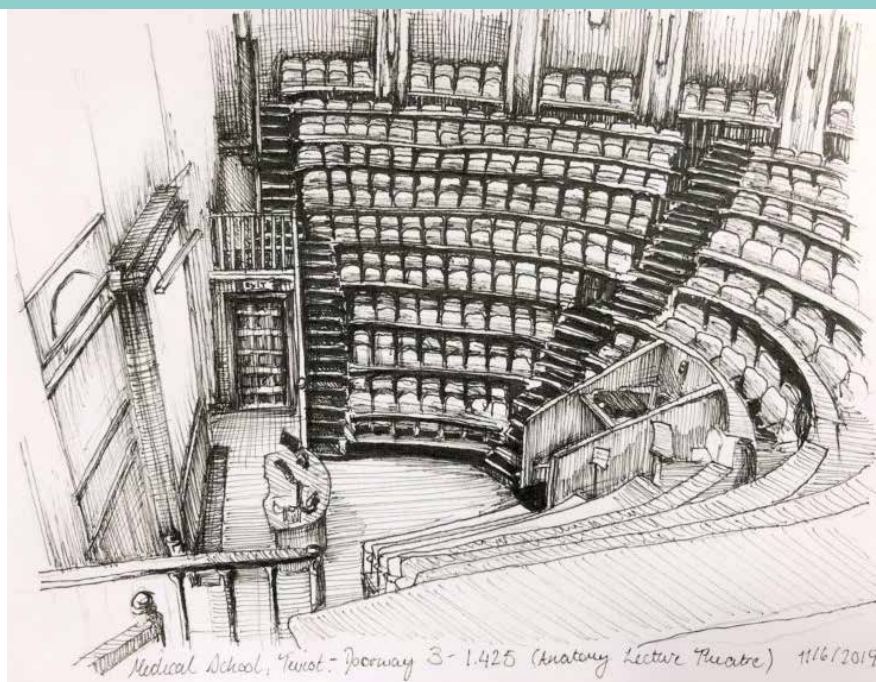 EXIT
Medical School, Teviot - Doorway 3 - 1.425 (Anatomy Lecture Theatre) 11/6/2019